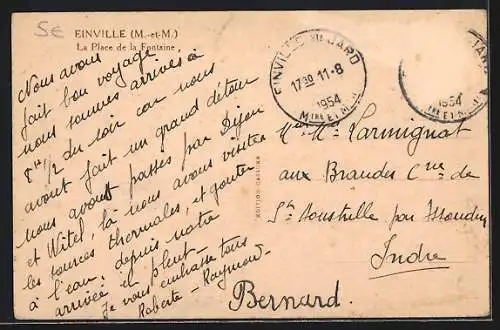 5€
EINVILLE (M.-et-M.)
La Place de la Fontaine
Nous avons
fait bon voyage,
nous sommes arrivés à
8 H 1/2 du soir car nous
avont fait un grand détour
nous avont passés par Dijon
et Vittel, là nous avons visiter
les sources thermales, et goûter
à l'eau, depuis notre
arrivée il pleut.
Je vous embrasse tous
Roberte - Raymond.
Bernard.
EINVILLE AU JARD
17 30 11-8
1954
MTHE ET MLLE
JARD
1954
ÉDITION GASTIEN
Larmignat
aux Brandes Cne de
par Issoudun
Indre